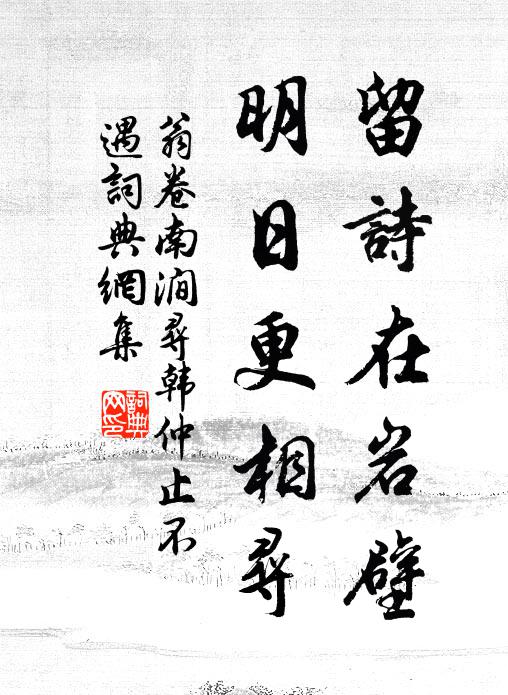 留詩在岩壁
明日更相尋
翁卷南澗尋韓仲止不
遇詞典網集
詞典
网印